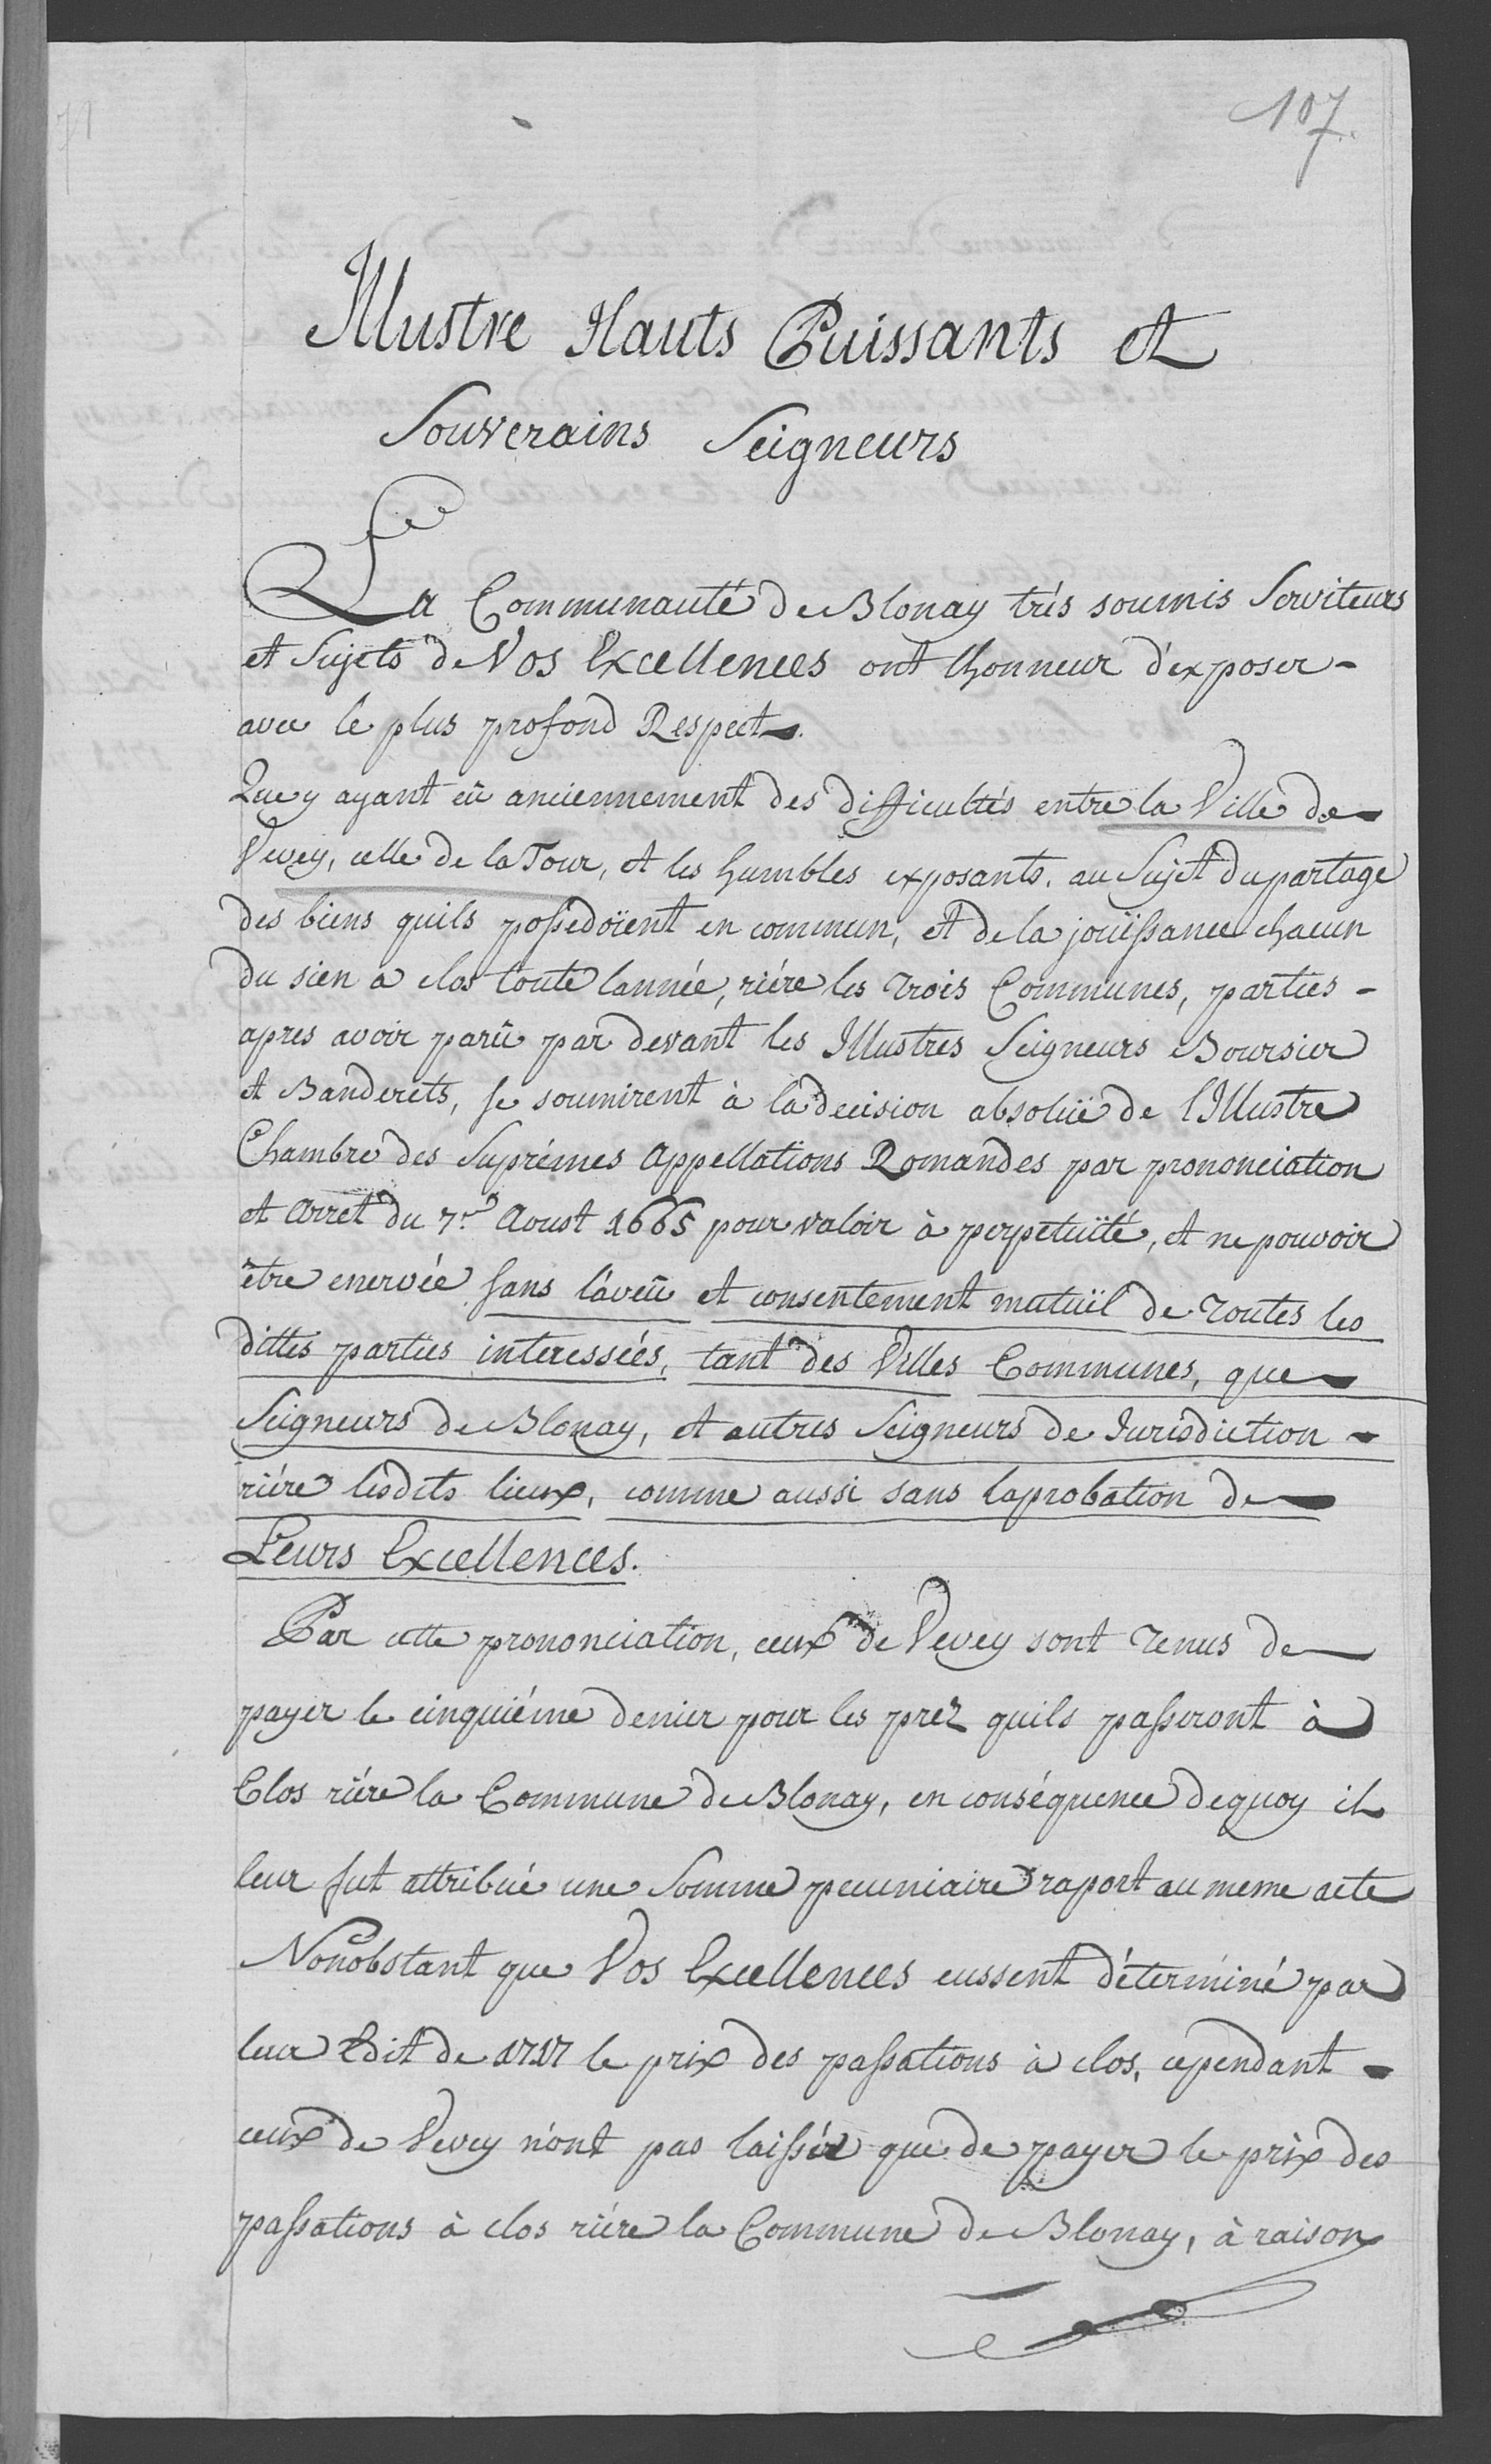 107.
Illustre Hauts Puissants et
Souverains Seigneurs
La Communauté de Blonay trés soumis Serviteurs
et Sujets de Vos Excellences ont lhonneur d'exposer-
avec le plus profond Respect.
Que y ayant eû anciennement des difficultés entre la Ville de
Vevey, celle de la Tour, et les humbles exposants, au Sujet du partage
des biens quils possedoïent en commun, et de la joüissance chacun
du sien a clos toute lannée, riére les trois Communes, parties -
apres avoir parû par devant les Illustres Seigneurs Boursier
et Banderets, se soumirent à la decision absolüe de l'Illustre
Chambre des Suprémes Appellations Romandes par prononciation
et Arret du 7.e Aoust 1665 pour valoir à perpetuïté, et ne pouvoir
être enervée sans l'aveû et consentement mutuël de toutes les
dittes parties interessées, tant des Villes Communes, que
Seigneurs de Blonay, et autres Seigneurs de Jurisdiction -
riére lesdits lieux, comme aussi sans laprobation de
Leurs Excellences.
Par cette prononciation, ceux de Vevey sont tenus de
payer le cinquiéme denier pour les prez quils passeront à
Clos riére la Commune de Blonay, en conséquence dequoy il
leur fut attribué une Somme pecuniaire raport au meme acte
Nonobstant que Vos Excellences eussent déterminé par
leur Edit de 1717 le prix des passations à clos, cependant -
ceux de Vevey n'ont pas laissér que de payer le prix des
passations à clos riére la Commune de Blonay, à raison